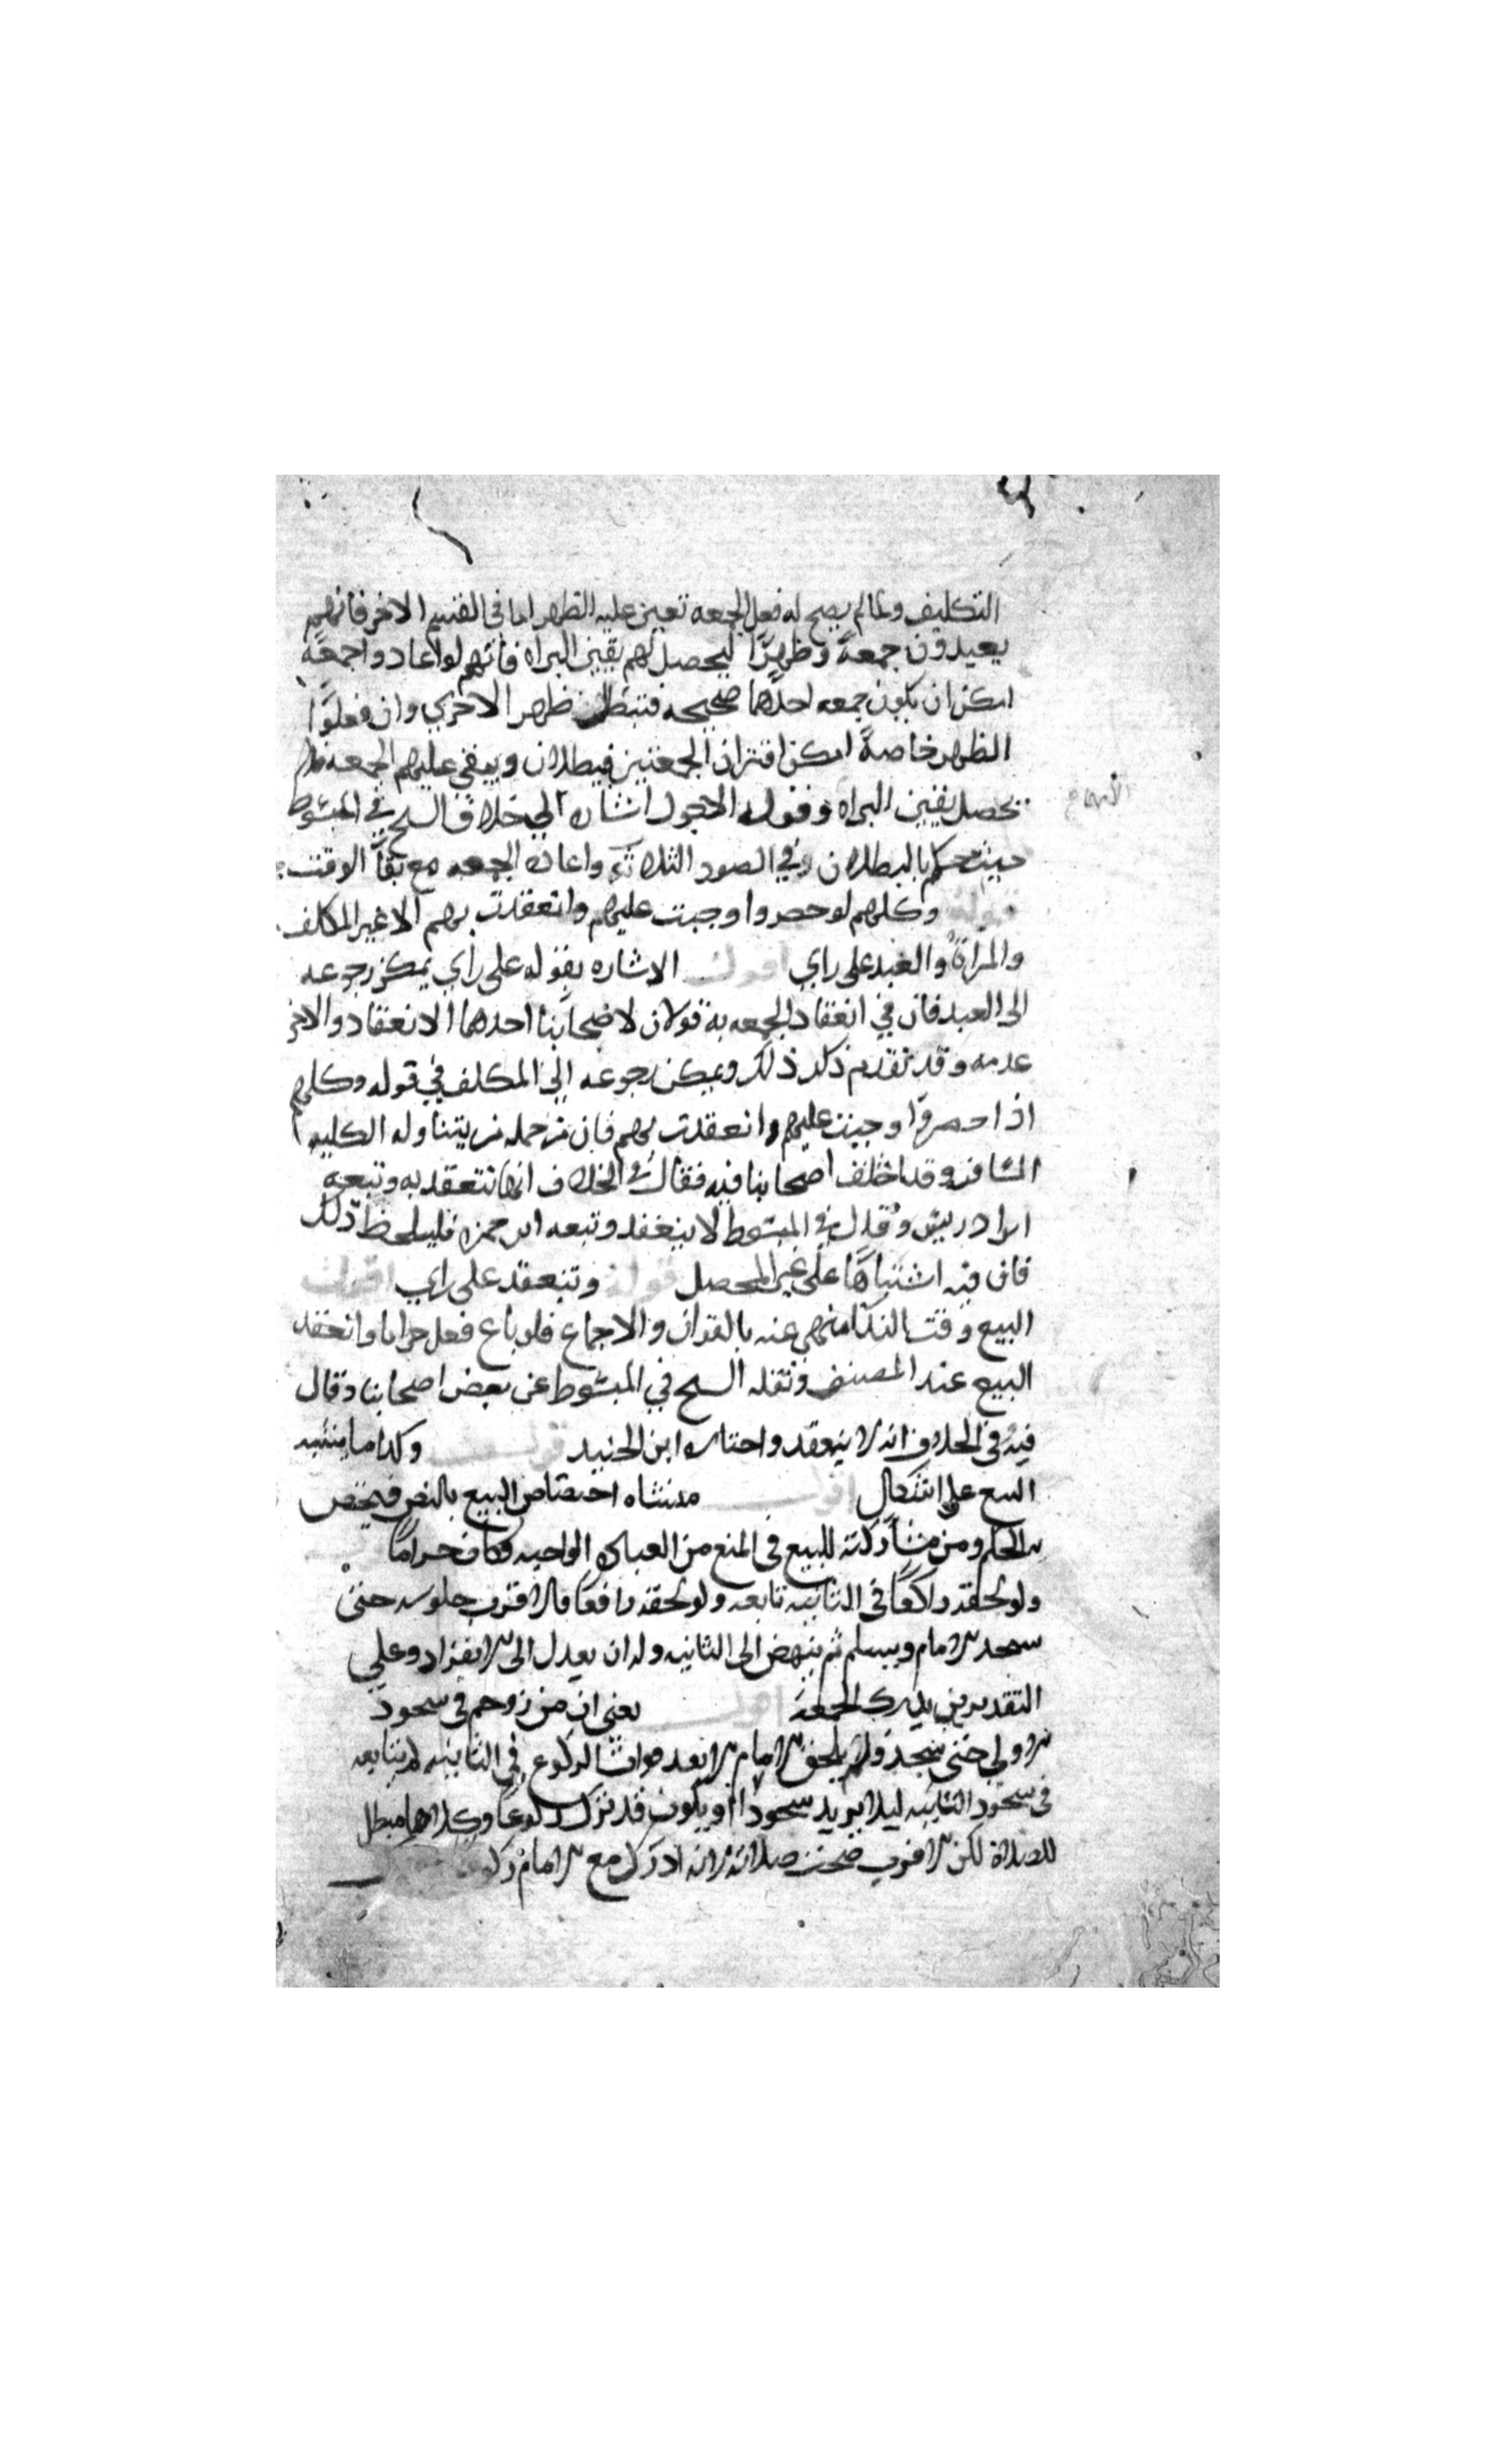 التكليف ولما لم يصح له فعل الجمعه تعين عليه الظهر اما في القسم الاخر فانهم
يعيدون جمعةً وظهرًا ليحصل لهم يقين البراه فانهم لو اعادوا جمعةً
امكن ان يكون جمعه احدهما صحيحه فتبطل ظهر الاخري وان فعلوا
الظهر خاصةً امكن اقتران الجمعتين فيبطلان ويبقى عليهم الجمعه فلم
يحصل يقين البراه وقوله الاجود اشاره الى خلاف الشيخ في المبسوط
حيث حكم بالبطلان في الصور الثلاث واعاده الجمعه مع بقآ الوقت
قوله وكلهم لو حضروا وجبت عليهم وانعقدت بهم الا غير المكلف
والمراة والعبد على راي اقول الاشاره بقوله على راي يمكن رجوعه
الى العبد فان في انعقاد الجمعه به قولان لاصحابنا احدهما الانعقاد والاخر
عدمه وقد تقدم ذكر ذلك ويمكن رجوعه الى المكلف في قوله وكلهم
اذا حضروا وجبت عليهم وانعقدت بهم فان من جمله من يتناوله الكليه
المسافر وقد اختلف اصحابنا فيه فقال في الخلاف انها تنعقد به وتبعه
ابن ادريس وقال في المبسوط لا ينعقد وتبعه ابن حمزه فليلحظ ذلك
فان فيه اشتباهًا على غير المحصل قوله وتنعقد على راي اقول
البيع وقت الندآ منهى عنه بالقران والاجماع فلو باع فعل حراما وانعقد
البيع عند المصنف ونقله الشيخ في المبسوط عن بعض اصحابنا وقال
فيه وفي الخلاف انه لا ينعقد واختاره ابن الجنيد قوله وكذا ما يشبه
البيع على اشكال اقول منشاه اختصاص البيع بالنص فيختص
بالحكم ومن مشاركته للبيع في المنع من العباده الواجبه فكان حرامًا
ولو لحقه راكعًا في الثانيه تابعه ولو لحقه رافعًا فالاقرب جلوسه حتى
يسجد الامام ويسلم ثم ينهض الى الثانيه وله ان يعدل الى الانفراد وعلى
التقديرين يدرك الجمعة اقول يعني ان من زوحم في سجود
الاولى حتى سجد ولم يلحق الامام الا بعد فوات الركوع في الثانيه لم يتابعه
في سجود الثانيه ليلا يزيد سجودًا او يكون قد ترك ركوعًا وكلاهما مبطل
للصلاة لكن الاقرب صحت صلاته لانه ادرك مع الامام